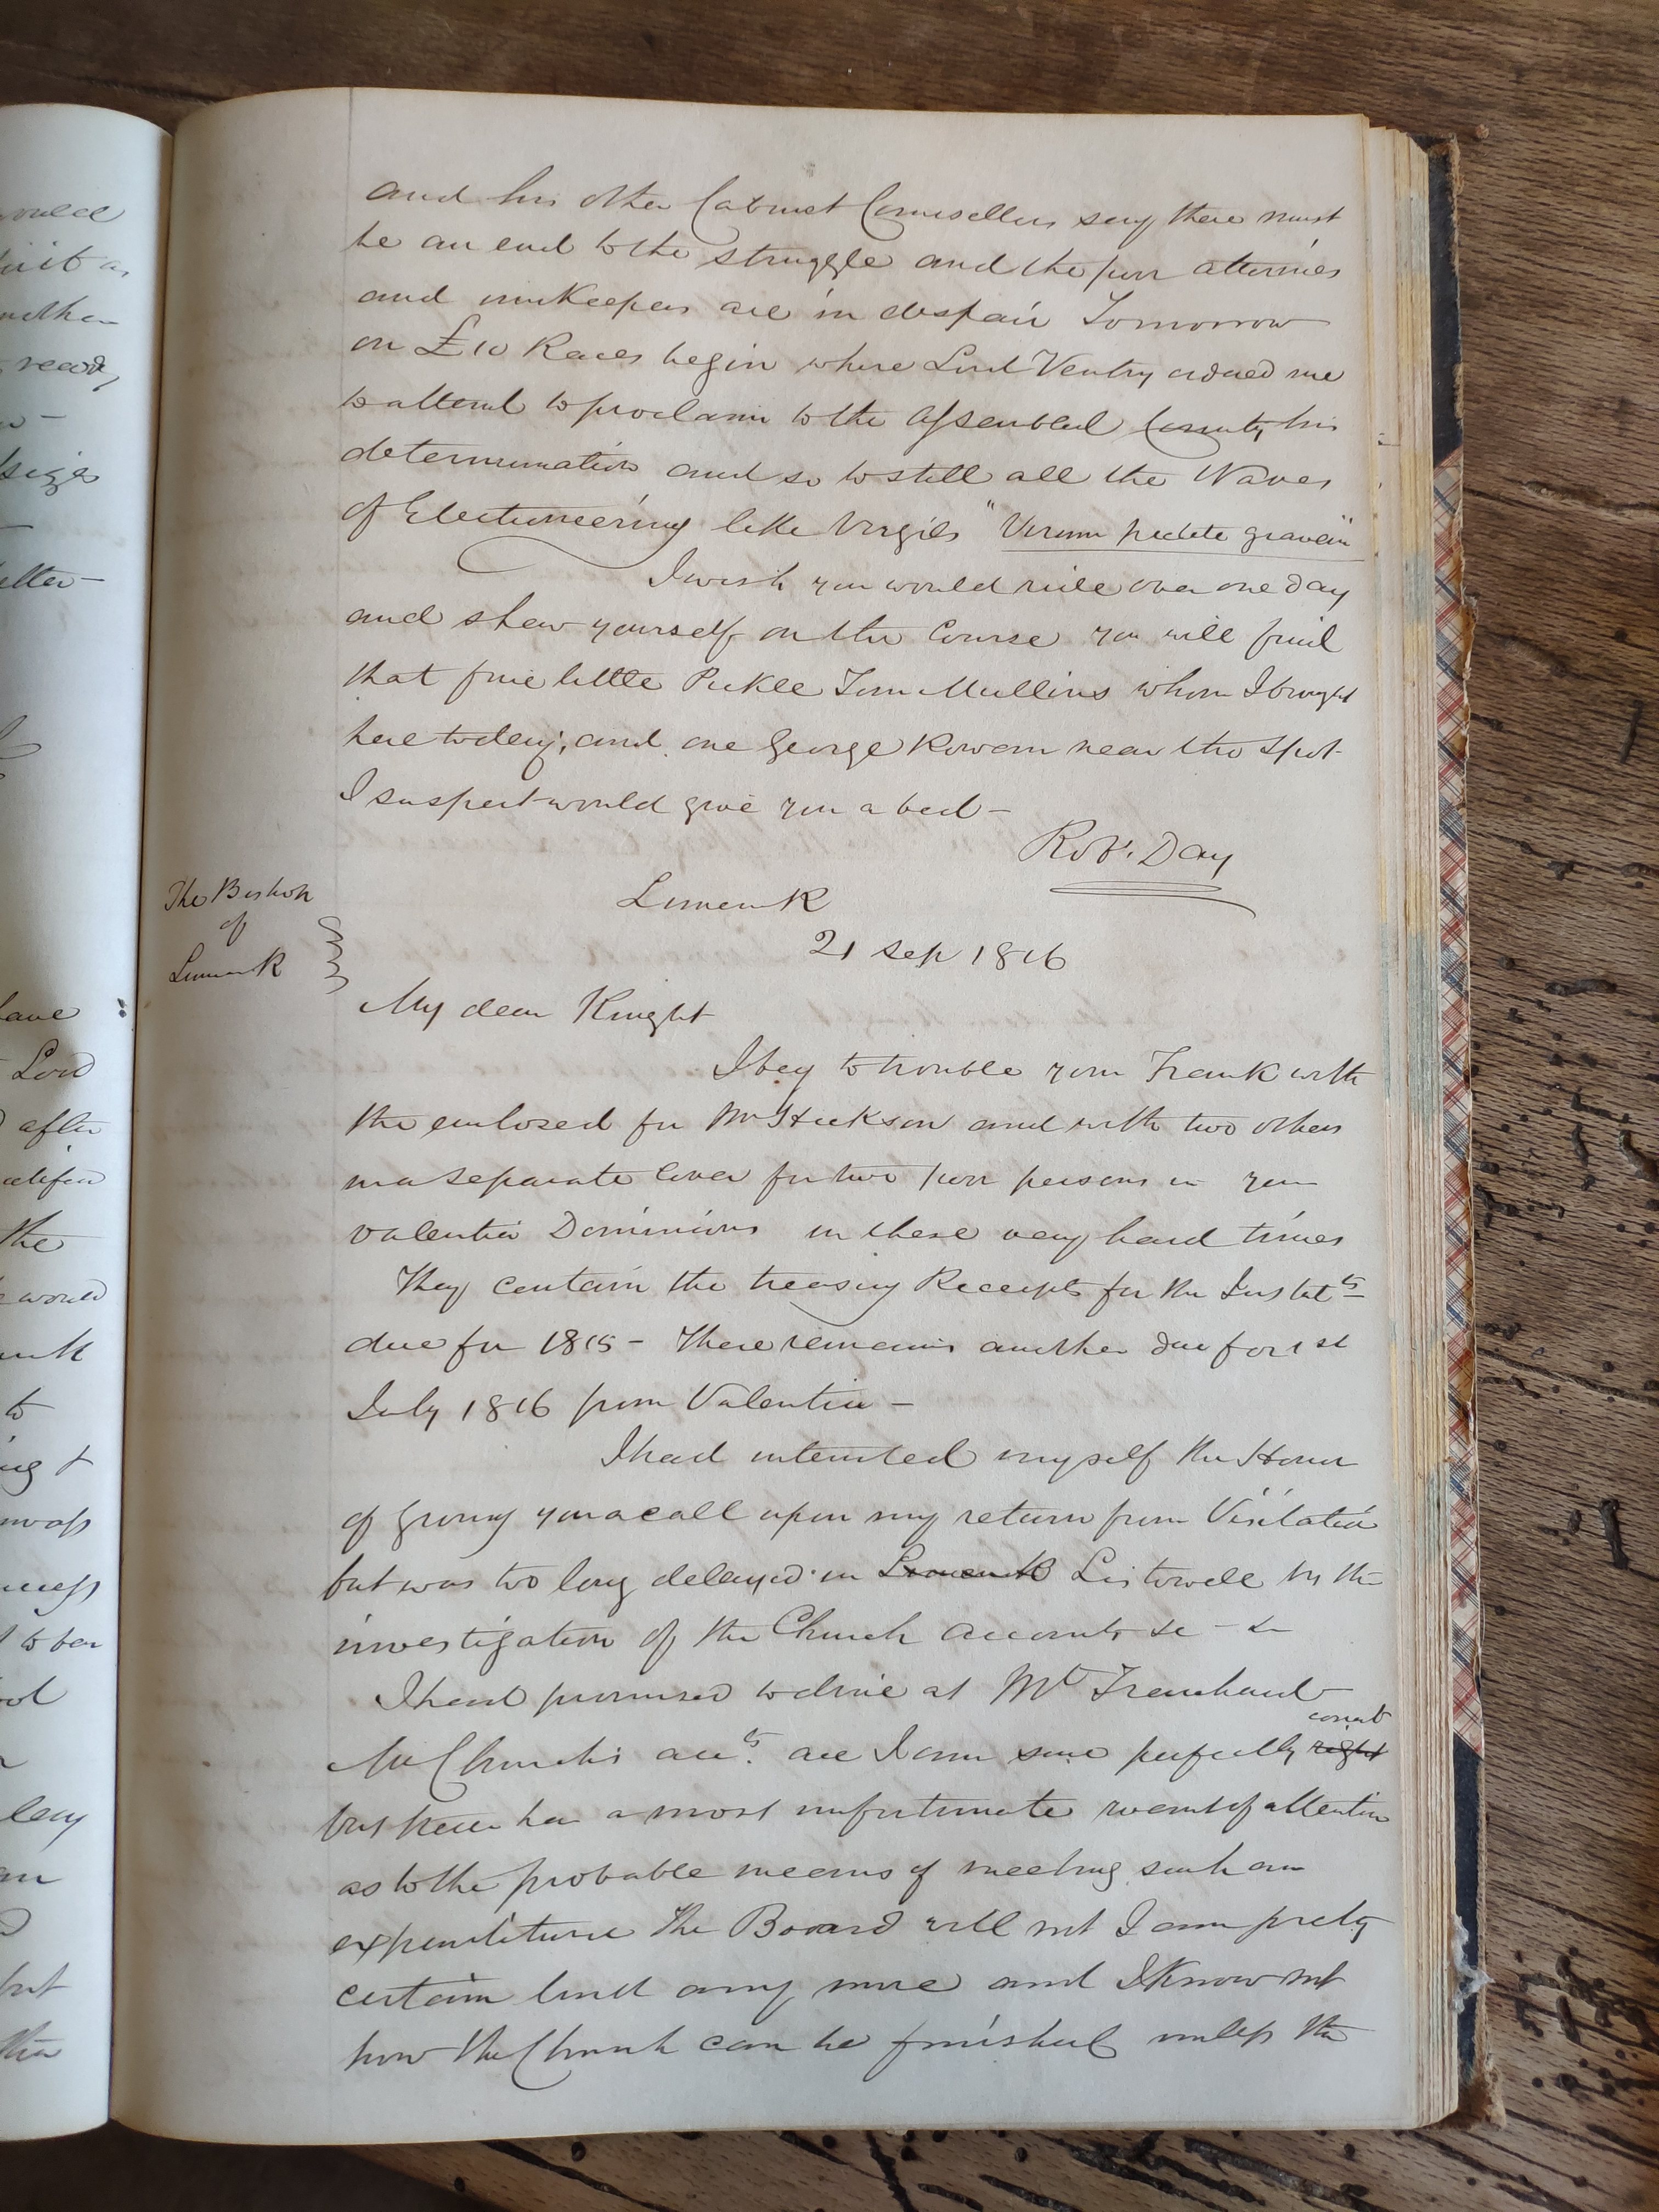 and his other Cabinet Counsellors say there must
be an end to the struggle and the poor attornies
and innkeepers are in despair Tomorrow
our £10 Races begin where Lord Ventry advised me
to attend to proclaim to the assembled County his
determination and so to still all the Waves
of Electioneering like Virgils "Virum pietate gravem"
I wish you would ride over one day
and shew yourself on the Course you will find
that fine little Pickle Tom Mullins whom I brought
here today, and one George Rowan near the spot
I suspect would give you a bed –
Robt. Day
The Bishop
of
Limerick
Limerick
21 Sep 1816
My dear Knight
I beg to trouble your Frank with
the enclosed for Mr Hickson and with two others
in a separate cover for two poor persons in your
Valentia Dominions in these very hard times
They contain the treasury Receipts for the Instalts
due for 1815 – There remains another due for 1st
July 1816 from Valentia –
I had intended myself the Honor
of giving you a call upon my return from Visitation
but was too long delayed in Limerick Listowell by the
investigation of the Church accounts &c – &c
I had promised to dine at Mt Trenchard
correct
Mr Church's accts. are I am sure perfectly right
but there has a most unfortunate want of attention
as to the probable means of meeting such an
expenditure The Board will not I am prety
certain lend any more and I know not
how the Church can be finished unless the